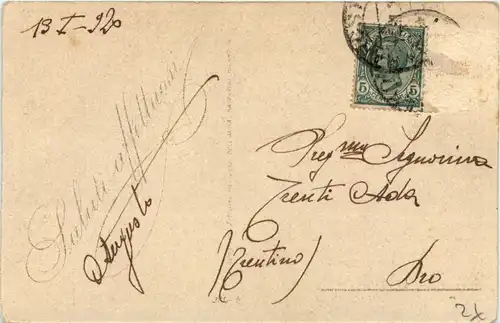 13 I - 920
Saluti affettuosi
Augusto
5 5
Preg.ma Signorina
Trenti Ada
(Trentino) Dro
2x